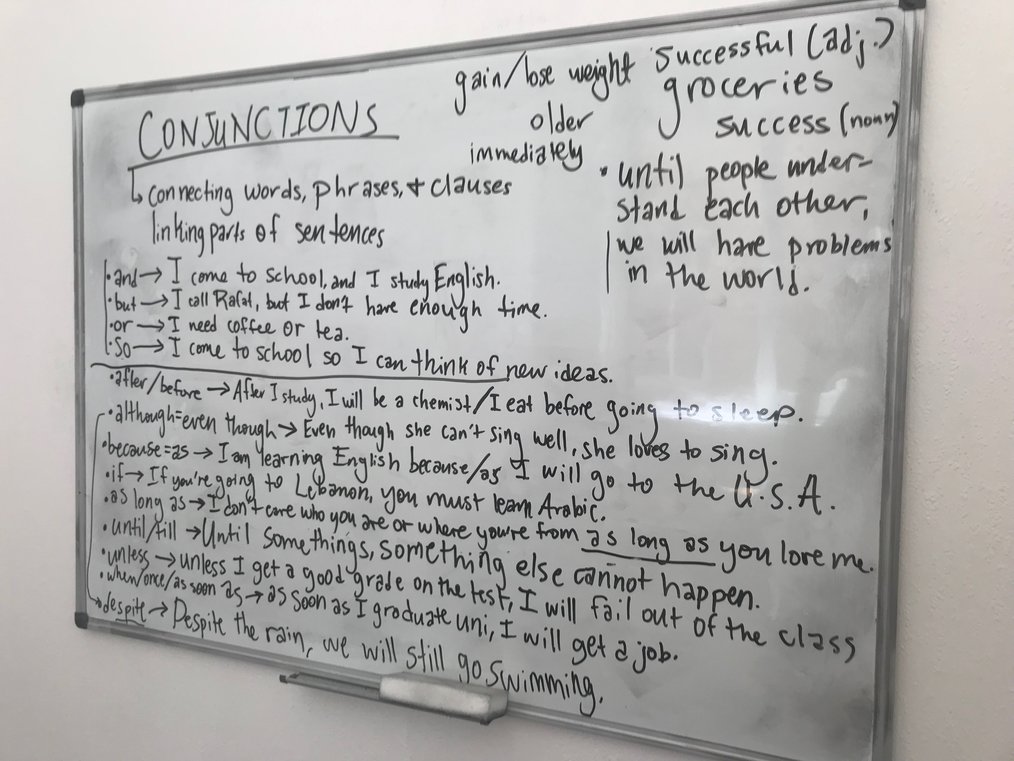 CONJUNCTIONS
↳ connecting words, phrases, + clauses
linking parts of sentences
gain/lose weight
older
immediately
successful (adj.)
groceries
success (noun)
• until people under-
stand each other,
we will have problems
in the world.
• and → I come to school, and I study English.
• but → I call Rafat, but I don't have enough time.
• or → I need coffee or tea.
• so → I come to school so I can think of new ideas.
• after/before → After I study, I will be a chemist/I eat before going to sleep.
• although=even though → Even though she can't sing well, she loves to sing.
• because=as → I am learning English because/as I will go to the U.S.A.
• if → If you're going to Lebanon, you must learn Arabic.
• as long as → I don't care who you are or where you're from as long as you love me.
• until/till → Until somethings, something else cannot happen.
• unless → unless I get a good grade on the test, I will fail out of the class
• when/once/as soon as → as soon as I graduate uni, I will get a job.
despite → Despite the rain, we will still go swimming.